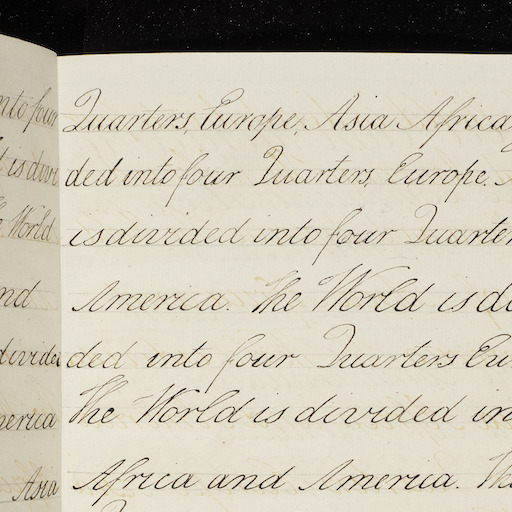 into four
is divi
World
nd
divided
merica
Asia
Quarters, Europe, Asia Africa
ded into four Quarters, Europe.
is divided into four Quarter
America. The World is di
ded into four Quarters Eu
The World is divided in
Africa and America. Th